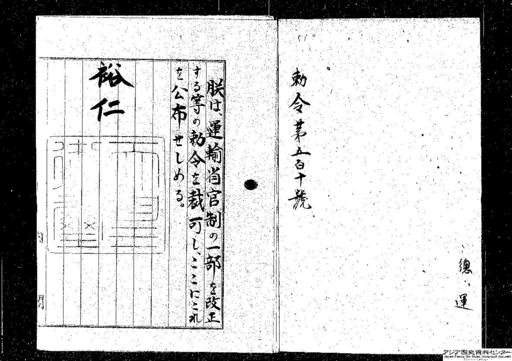 勅令第五百十號
總、運
朕は、運輸省官制の一部を改正
する等の勅令を裁可し、ここにこれ
を公布せしめる。
裕仁
内閣
アジア歴史資料センター